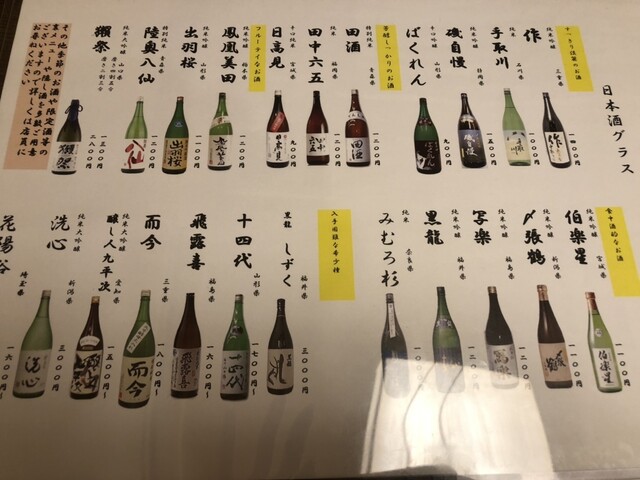 日本酒グラス
すっきり淡麗のお酒
作
純米
三重県
一一〇〇円
手取川
純米
石川県
一一〇〇円
磯自慢
純米吟醸
静岡県
一五〇〇円
ばくれん
吟醸
山形県
九〇〇円
芳醇しっかりのお酒
田酒
特別純米
青森県
一二〇〇円
田中六五
純米
福岡県
一一〇〇円
日高見
辛口純米
宮城県
九〇〇円
フルーティなお酒
鳳凰美田
純米吟醸
栃木県
一二〇〇円
出羽桜
純米吟醸
山形県
一一〇〇円
陸奥八仙
特別純米
青森県
一二〇〇円
獺祭
純米大吟醸
山口県
磨き四割五分
磨き二割三分
一三〇〇円
二八〇〇円
その他季節のお酒や限定酒等の
裏メニューや隠し酒を多数ご用意
ございますので詳しくは店員に
お尋ねください
食中酒的なお酒
伯楽星
純米吟醸
宮城県
一一〇〇円
〆張鶴
純米吟醸
新潟県
一二〇〇円
写楽
純米吟醸
福島県
一二〇〇円
黒龍
純米吟醸
福井県
みむろ杉
純米
奈良県
一〇〇〇円
入手困難な希少種
黒龍 しずく
福井県
三〇〇〇円
十四代
山形県
一七〇〇円~
飛露喜
福島県
一六〇〇円~
而今
三重県
一八〇〇円~
醸し人九平次
純米大吟醸
愛知県
一五〇〇円~
洗心
純米大吟醸
新潟県
三〇〇〇円
花陽浴
埼玉県
一六〇〇円~